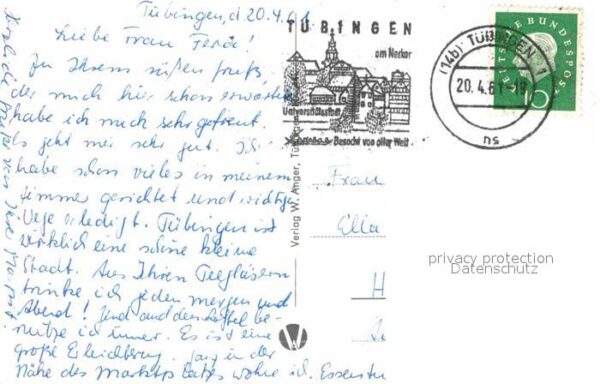 Tübingen, d 20.4.61
Liebe Frau
Zu Ihrem süßen Gruß,
der mich hier schon erwartete
habe ich mich sehr gefreut.
Es geht mir sehr gut. Ich
habe schon vieles in meinem
Zimmer gerichtet und wichtige
Wege erledigt. Tübingen ist
wirklich eine schöne kleine
Stadt. Aus Ihren Teegläsern
trinke ich jeden morgen und
Abend! Und auch den Löffel be-
nutze ich immer. Es ist eine
große Erleichterung. Ganz in der
Nähe des Marktplatzes wohne ich. Essen
Herzliche Grüße von Ihrer
TÜBINGEN
am Neckar
Universitätsstadt
Besucht von aller Welt
(14b) TÜBINGEN 1
20.4.61-19
ns
DEUTSCHE BUNDESPOST
10
Verlag W. Anger, Tübingen
Frau
Ella
H
privacy protection
Datenschutz